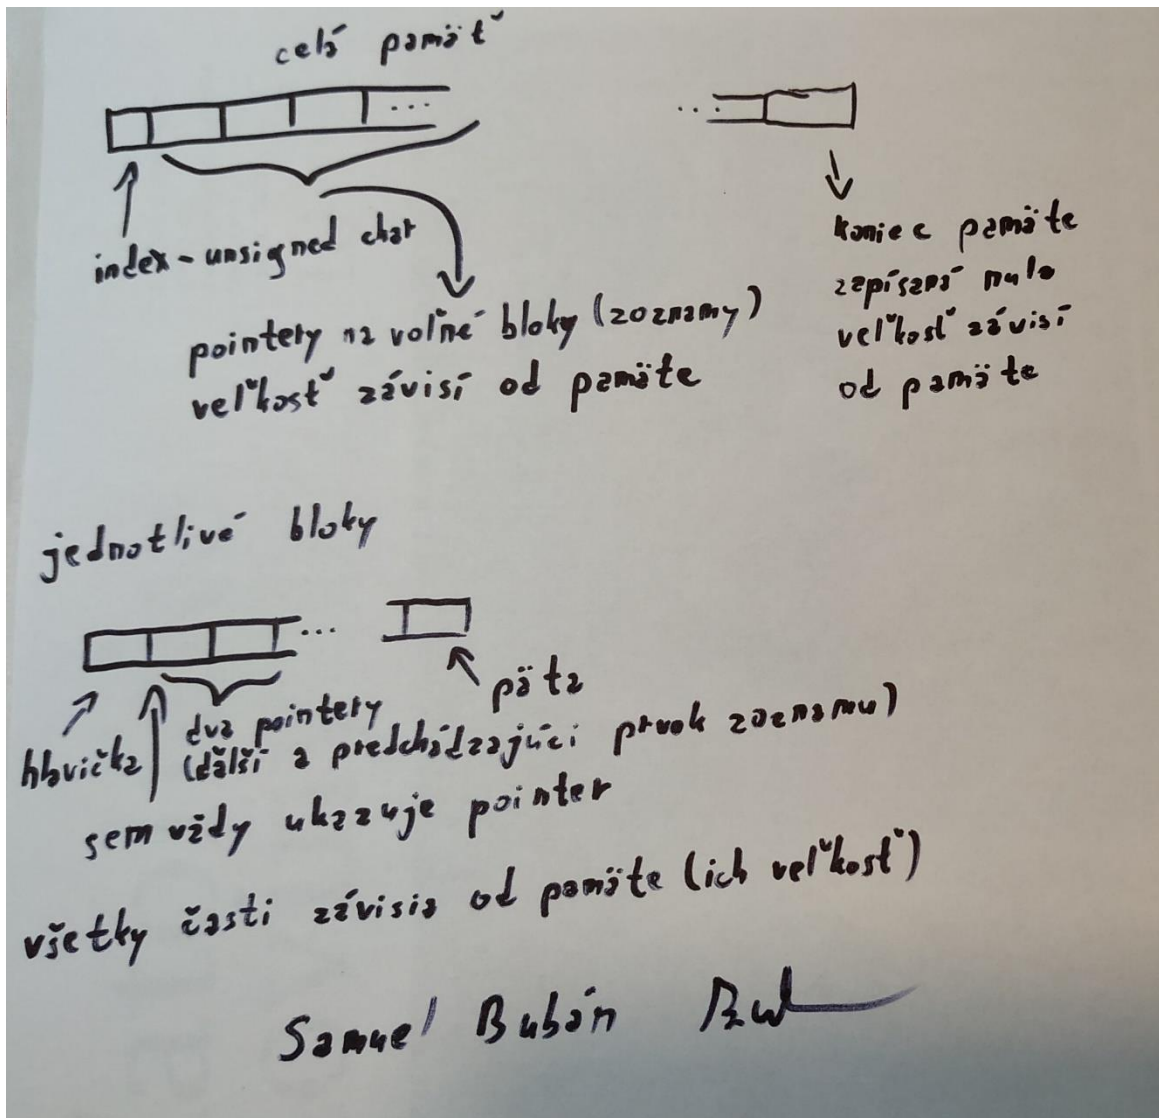 celá pamäť
...
...
index - unsigned char
pointery na voľné bloky (zoznamy)
veľkosť závisí od pamäte
koniec pamäte
zapísaná nula
veľkosť závisí
od pamäte
jednotlivé bloky
...
päta
hlavička
dva pointery
(ďalší a predchádzajúci prvok zoznamu)
sem vždy ukazuje pointer
všetky časti závisia od pamäte (ich veľkosť)
Samuel Bubán